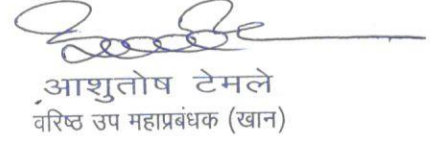 आशुतोष टेमले
वरिष्ठ उप महाप्रबंधक (खान)